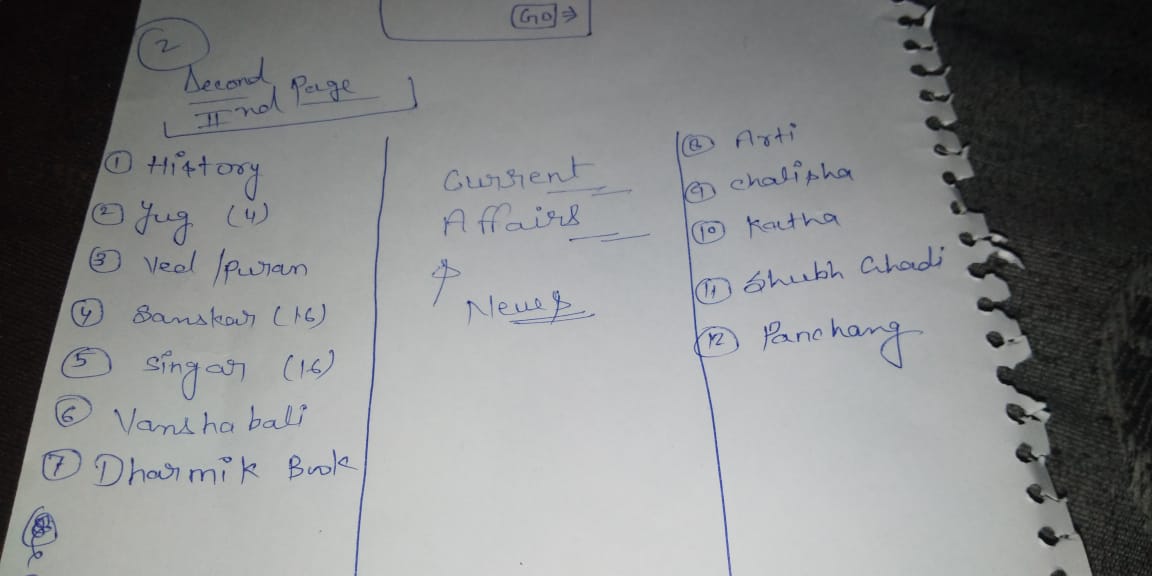 Go ⇒
2
Second Page
IInd
① History
② Jug (4)
③ Ved /puran
④ Sanskar (16)
⑤ Singar (16)
⑥ Vanshabali
⑦ Dharmik Book
Current
Affairs
↑
News
⑧ Arti
⑨ chalisha
⑩ Katha
⑪ Shubh Ghadi
⑫ Panchang